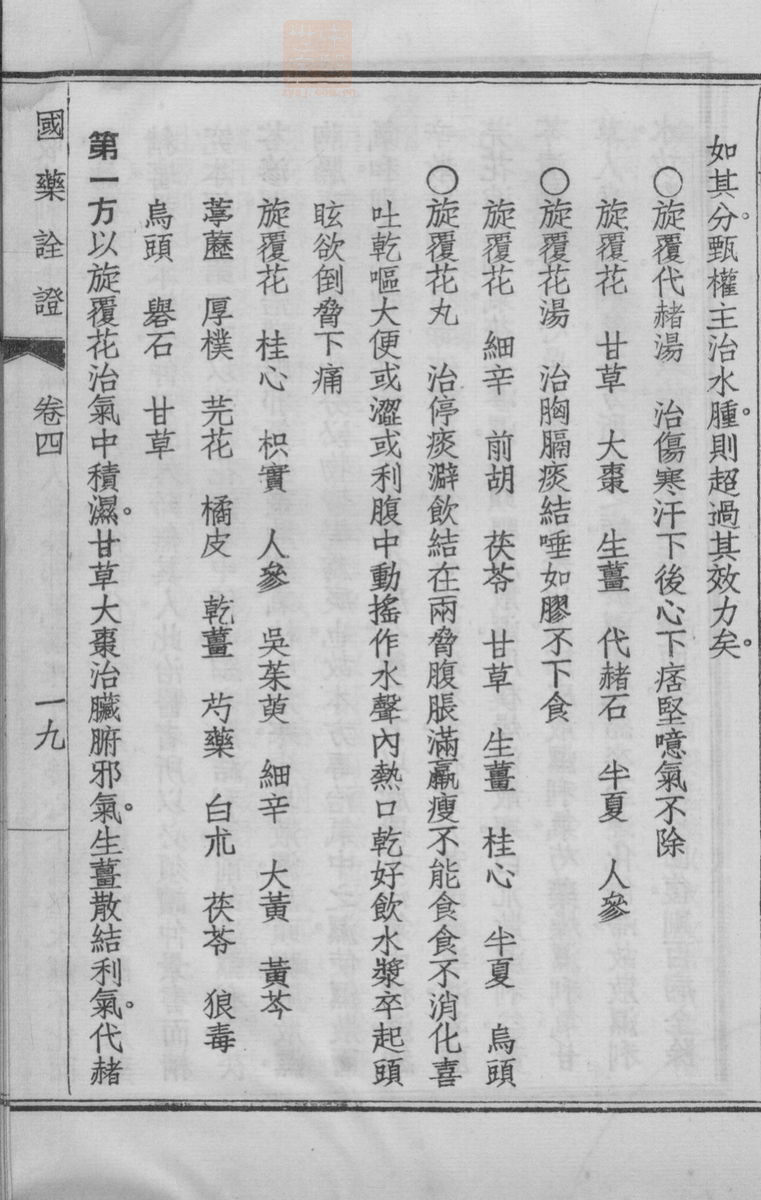 如其分。甄權主治水腫。則超過其效力矣。
〇旋覆代赭湯　治傷寒汗下後心下痞堅噫氣不除
旋覆花　甘草　大棗　生薑　代赭石　半夏　人參
〇旋覆花湯　治胸膈痰結唾如膠不下食
旋覆花　細辛　前胡　茯苓　甘草　生薑　桂心　半夏　烏頭
〇旋覆花丸　治停痰澼飲結在兩脅腹脹滿羸瘦不能食食不消化喜
吐乾嘔大便或澀或利腹中動搖作水聲內熱口乾好飲水漿卒起頭
眩欲倒脅下痛
旋覆花　桂心　枳實　人參　吳茱萸　細辛　大黃　黃芩
葶藶　厚樸　芫花　橘皮　乾薑　芍藥　白朮　茯苓　狼毒
烏頭　礜石　甘草
第一方以旋覆花治氣中積濕。甘草大棗治臟腑邪氣。生薑散結利氣。代赭
國藥詮證　卷四　一九